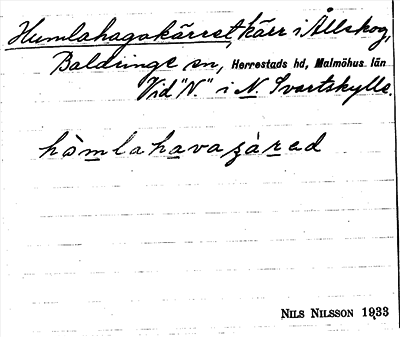 Humlahagakärret, kärr i Ållskog,
Baldringe sn, Herrestads hd, Malmöhus län
Vid "N" i N. Svartskylle.
hòmlahava
NILS NILSSON 1933